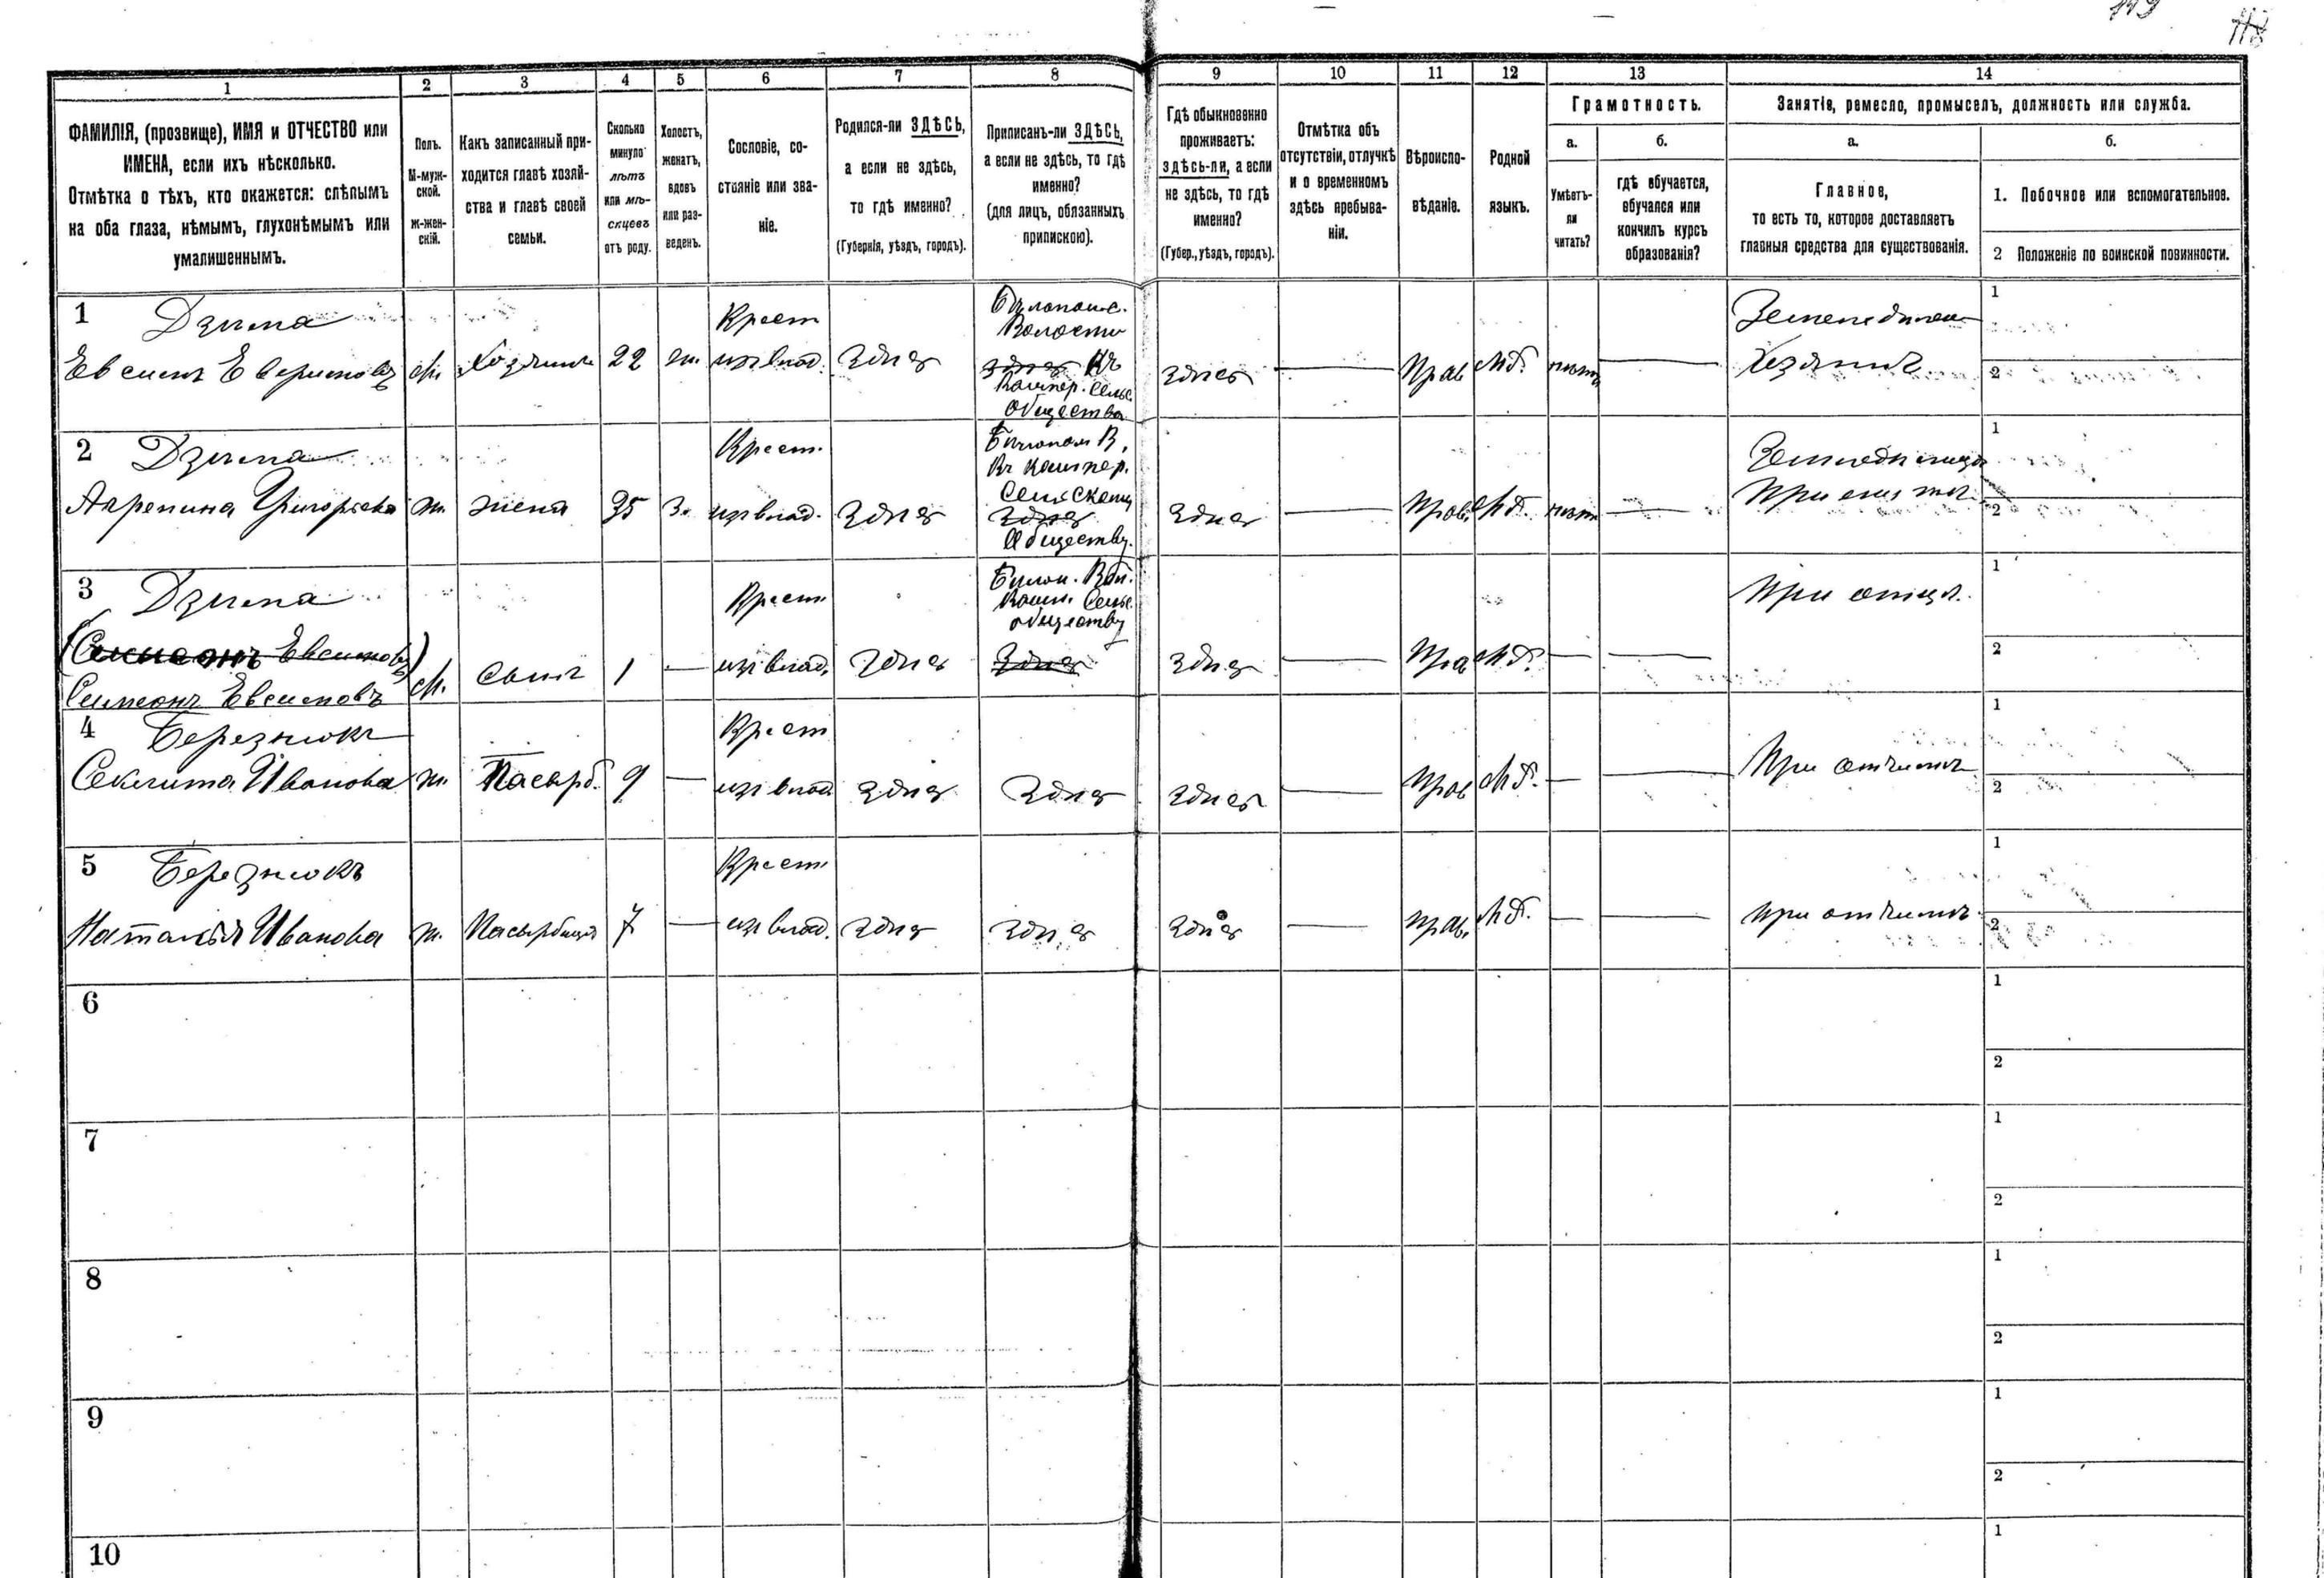 1
2
3
4
5
6
7
8
9
10
11
12
13
14
ФАМИЛІЯ, (прозвище), ИМЯ и ОТЧЕСТВО или
ИМЕНА, если ихъ нѣсколько.
Отмѣтка о тѣхъ, кто окажется: слѣпымъ
на оба глаза, нѣмымъ, глухонѣмымъ или
умалишеннымъ.
Полъ.
М-муж-
ской.
ж-жен-
скій.
Какъ записанный при-
ходится главѣ хозяй-
ства и главѣ своей
семьи.
Сколько
минуло
лѣтъ
или мѣ-
сяцевъ
отъ роду.
Холостъ,
женатъ,
вдовъ
или раз-
веденъ.
Сословіе, со-
стояніе или зва-
ніе.
Родился-ли ЗДѢСЬ,
а если не здѣсь,
то гдѣ именно?
(Губернія, уѣздъ, городъ).
Приписанъ-ли ЗДѢСЬ,
а если не здѣсь, то гдѣ
именно?
(для лицъ, обязанныхъ
припискою).
Гдѣ обыкновенно
проживаетъ:
здѣсь-ли, а если
не здѣсь, то гдѣ
именно?
(Губер., уѣздъ, городъ).
Отмѣтка объ
отсутствіи, отлучкѣ
и о временномъ
здѣсь пребыва-
ніи.
Вѣроиспо-
вѣданіе.
Родной
языкъ.
Грамотность.
а.
Умѣетъ-
ли
читать?
б.
гдѣ обучается,
обучался или
кончилъ курсъ
образованія?
Занятіе, ремесло, промыселъ, должность или служба.
а.
Главное,
то есть то, которое доставляетъ
главныя средства для существованія.
б.
1. Побочное или вспомогательное.
2 Положеніе по воинской повинности.
1
Дзыма
Крест
Волости
1
м. Хозяинъ 22 ж. изъ влад. Здѣсь
Къ
Сельс.
Общества
здѣсь
Прав
нѣтъ
Хозяинъ
2
2
Дзыма
Крест.
1
Григорьева ж. жена 35 З. изъ влад. Здѣсь
Здѣсь
Обществу.
Здѣсь
Прав.
нѣтъ
2
3
Дзыма
Крест.
обществу
При отцѣ.
1
Симеонъ Евсиповъ м. сынъ 1 — изъ влад. Здѣсь
Здѣсь
Здѣсь
Прав
2
4
Березнюкъ
Крест
1
Секлита Иванова ж. Пасерб. 9 — изъ влад Здѣсь Здѣсь Здѣсь
Прав
При отчимѣ
2
5
Березнюкъ
Крест.
1
Наталія Иванова ж. Пасербица 7 — изъ влад. Здѣсь Здѣсь Здѣсь
прав.
при отчимѣ
2
6
1
2
7
1
2
8
1
2
9
1
2
10
1